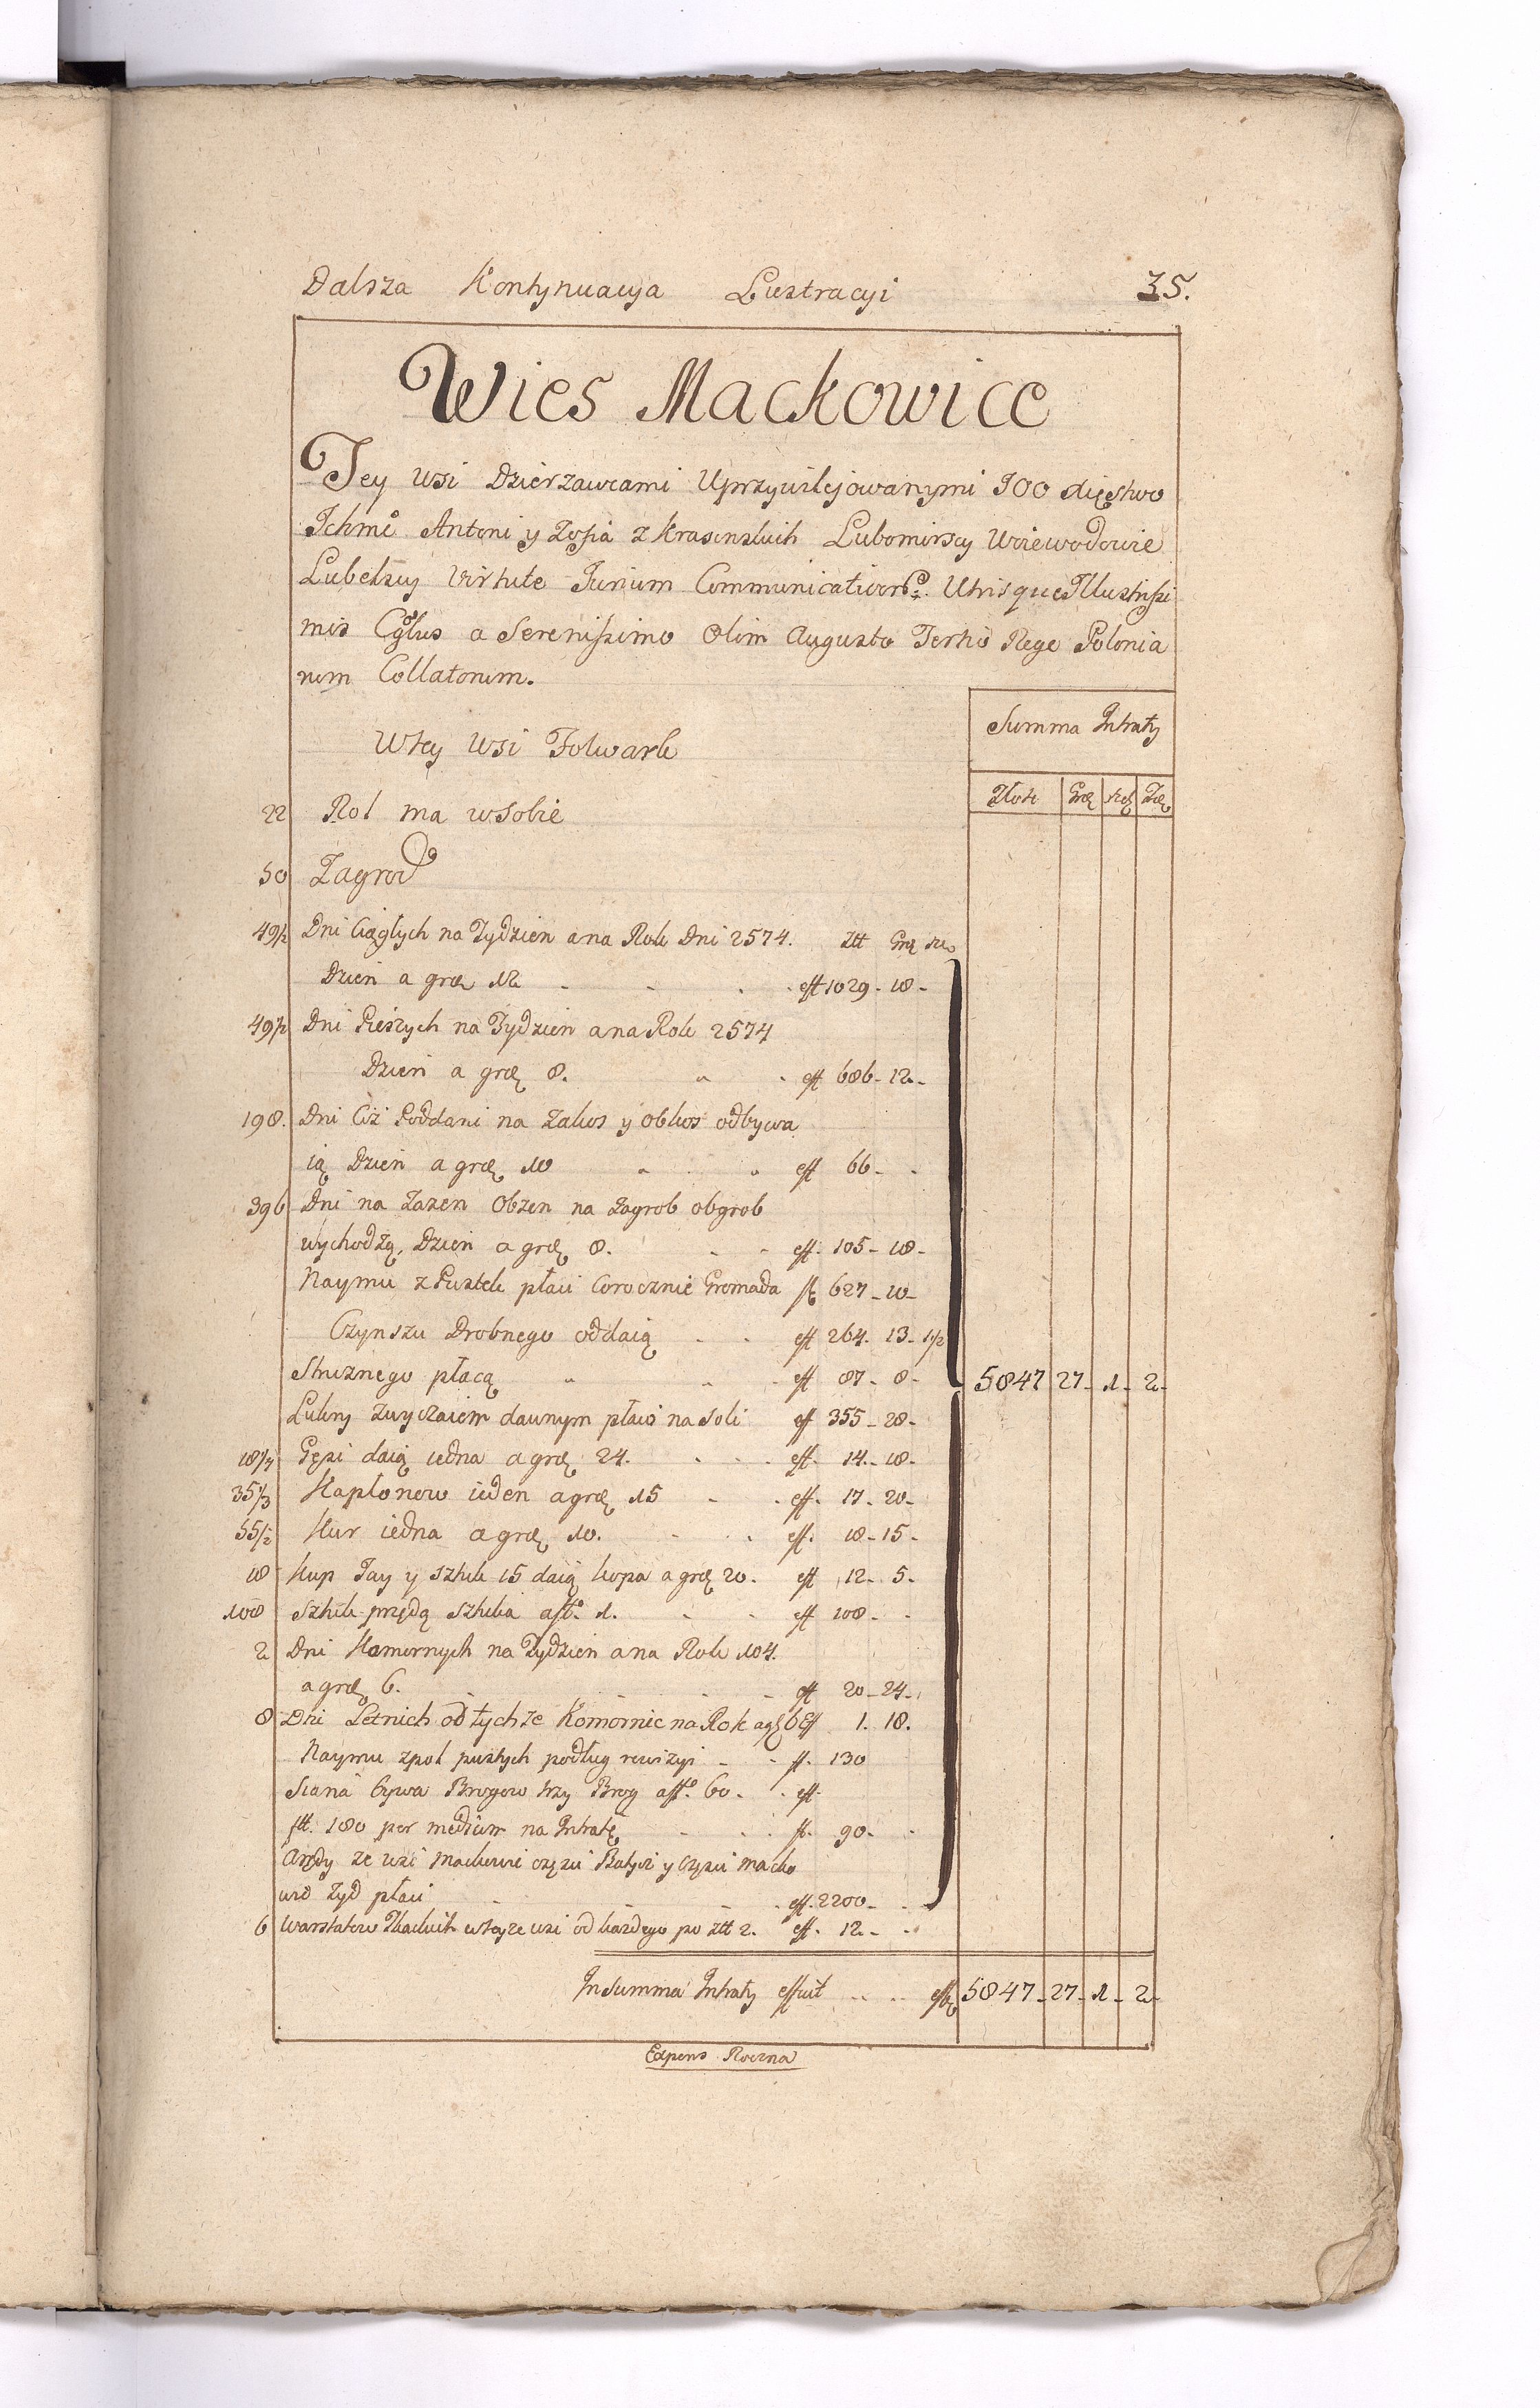 Dalsza Kontynuacya Lustracyi 35.
Wies Mackowice
Tey wsi Dzierzawcami Uprzywilejowanymi JOO Xięstwo
Ichmc Antoni y Zofia z Krasinskich Lubomirscy Woiewodowie
Lubelscy Virtute Jurium Communicativor: Utrisque Illustrissi
mis a Serenissimo Olim Augusto Tertio Rege Polonia
rum Collatorum.
Summa Intraty
Wtey Wsi Folwark
Złote Gro Sze
22 Rol ma wsobie
50 Zagrod
49 1/2 Dni Ciągłych na Tydzien a na Rok Dni 2574. Ztt Gro Sze
Dzień a gro 12 - - . . eff 1029 - 18 -
49 1/2 Dni Pieszych na Tydzien a na Rok 2574
Dzień a gro 8. . eff 686 - 12 -
198. Dni Ciż Poddani na Zakos y Obkos odbywa
ią Dzień a gro 10 eff 66 - -
396 Dni na Zazen Obzen na Zagrob obgrob
wychodzą, Dzień a gro 8. - - eff. 105 - 18 -
Naymu z Pustek płaci Corocznie Gromada fl 627 - 10 -
Czynszu Drobnego oddaią . . eff 264. 13 - 1/2
Struznego płacą eff 87 - 8 - 5847 27 - 1 - 2 -
zwyczaiem dawnym płacą na Soli eff 355 - 28 -
18 1/4 Gęsi daią iedna a gro 24. . . . eff. 14. - 18 -
35 1/3 Kapłonow ieden a gro 15 - . eff. 17 - 20 -
55 1/2 Kur iedna a gro 10. - . eff. 18 - 15 -
18 Kup Jay y sztuk 15 daią kopa a gro 20. eff 12 - 5 -
108 Sztuk przędą Sztuka a fl. 1. - - eff 108 - -
2 Dni Komornych na Tydzien a na Rok 104.
a gro 6. - - - - eff 20 - 24 -
8 Dni Letnich od tychże Komornic na Rok a 6 Eff 1. 18.
Naymu z pol pustych podług rewizyi - - fl. 130
Siana bywa Brogow trzy Brog a ff. 60. . eff.
fll. 180 per medium na Intratę - . . fl. 90 - .
ze wsi Mackowic części Batyci y części Macko
wic Żyd płaci - - - . eff. 2200 - . -
6 Warsztatow Tkackich wteyze wsi od kazdego po ztt 2. eff. 12. - . .
In Summa Intraty efficit . . . . 5847 - 27 - 1 - 2 -
Expens Roczna